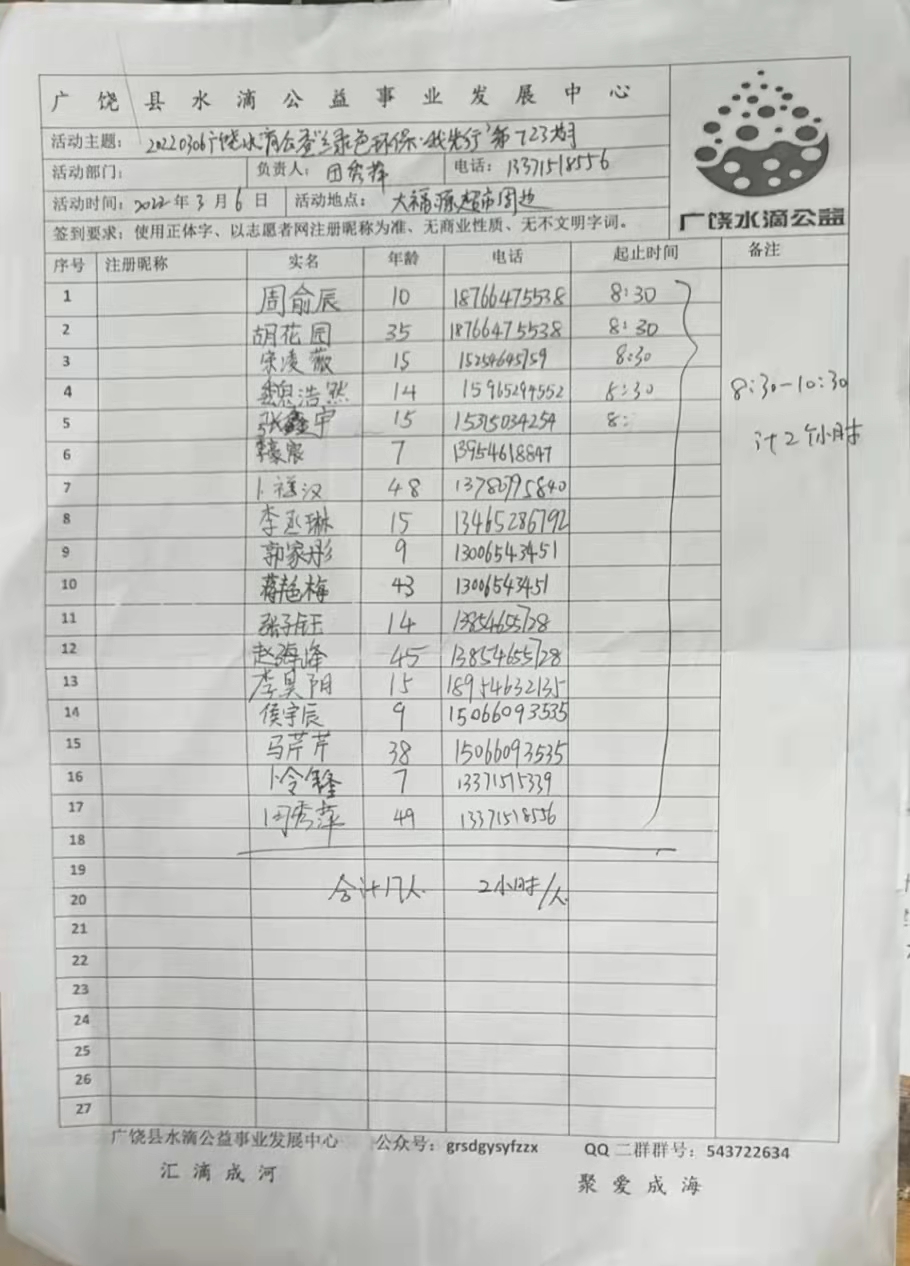 广饶县水滴公益事业发展中心
活动主题：20220306广饶水滴公益"绿色环保·我先行"第723期
活动部门： 负责人：田秀萍 电话：13371518556
活动时间：2022年3月6日 活动地点：大福源超市周边
广饶水滴公益
签到要求：使用正体字、以志愿者网注册昵称为准、无商业性质、无不文明字词。
序号 注册昵称 实名 年龄 电话 起止时间 备注
1 周俞辰 10 18766475538 8:30
2 胡花园 35 18766475538 8:30
3 宋凌薇 15 15254645759 8:30
4 魏浩然 14 15965294552 8:30
8:30-10:30
5 张鑫宇 15 15315034254 8:
计2个小时
6 7 13954618847
7 48
8 李丞琳 15 13465286792
9 郭家彤 9 13006543451
10 蒋艳梅 43 13006543451
11 张子钰 14 13854655728
12 赵海峰 45 13854655728
13 李昊阳 15 18954632135
14 侯宇辰 9 15066093535
15 马芹芹 38 15066093535
16 7 13371575339
17 田秀萍 49 13371518556
18
19
合计17人 2小时/人
20
21
22
23
24
25
26
27
广饶县水滴公益事业发展中心 公众号：grsdgysyfzzx QQ二群群号：543722634
汇滴成河 聚爱成海